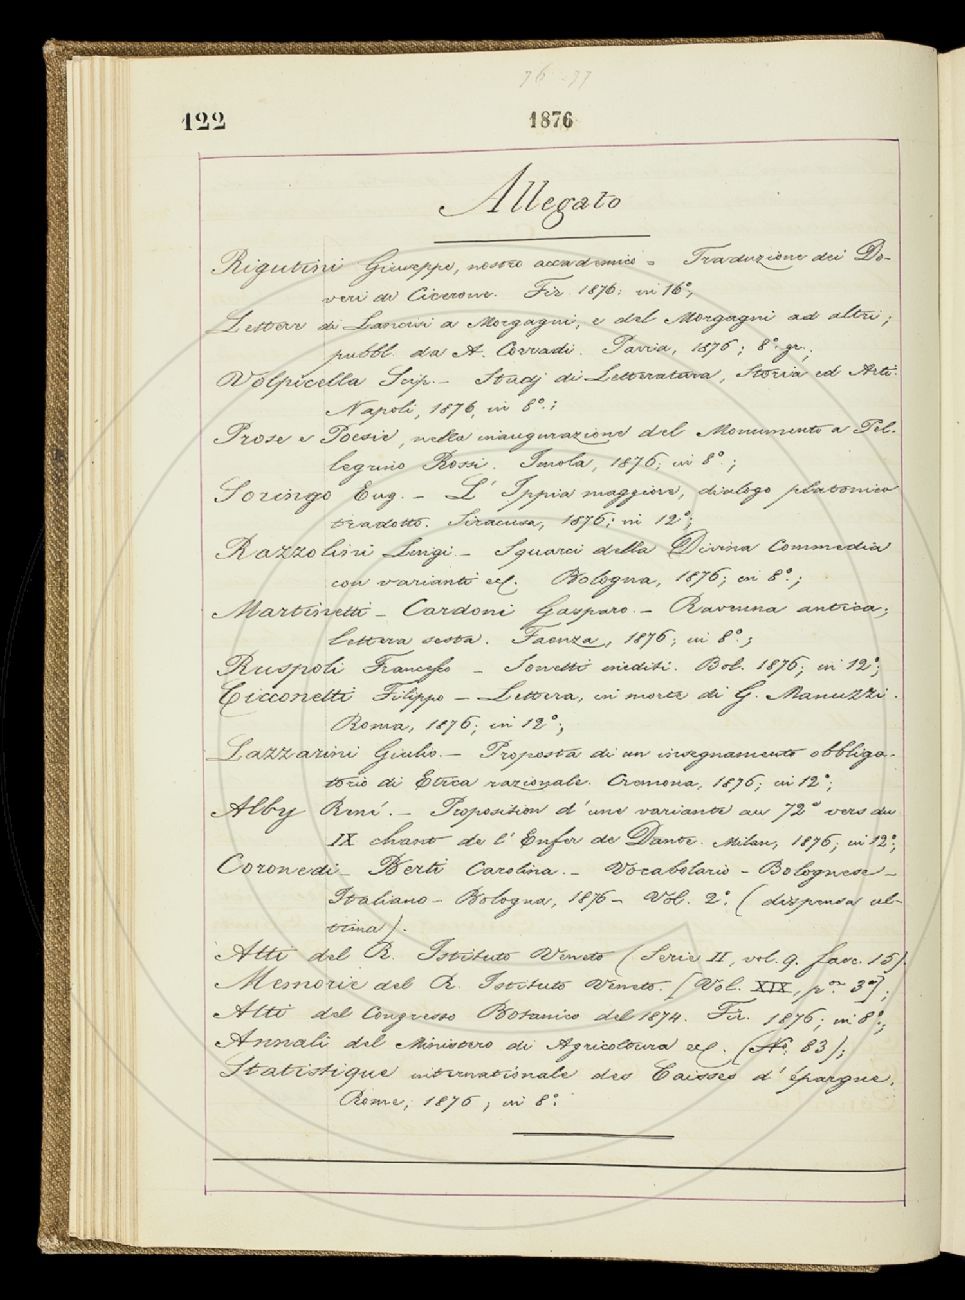 76-77
122
1876
Allegato
Rigutini Giuseppe, nostro accademico = Traduzione dei Do-
veri di Cicerone. Fir. 1876; in 16°;
Lettere di Lancisi a Morgagni, e del Morgagni ad altri;
pubbl. da A. Corradi. Pavia, 1876; 8° gr.;
Volpicella Scip. - Studj di Letteratura, Storia ed Arti.
Napoli, 1876, in 8°.;
Prose e Poesie, nella inaugurazione del Monumento a Pel-
legrino Rossi. Imola, 1876; in 8°;
Soringo Eug. - L' Ippia maggiore, dialogo platonico
tradotto. Siracusa, 1876; in 12°;
Razzolini Luigi - Squarci della Divina Commedia
con varianti ec. Bologna, 1876; in 8°.;
Martinetti - Cardoni Gasparo. - Ravenna antica;
lettera sesta. Faenza, 1876; in 8°.;
Ruspoli Francesco - Sonetti inediti. Bol. 1876; in 12°;
Cicconetti Filippo - Lettera, in morte di G. Manuzzi.
Roma, 1876; in 12°;
Lazzarini Giulio. - Proposta di un insegnamento obbliga-
torio di Etica razionale. Cremona, 1876; in 12°;
Alby René. - Proposition d'une variante au 72e vers du
IX chant de l'Enfer de Dante. Milan, 1876; in 12°;
Coronedi - Berti Carolina. - Vocabolario - Bolognese -
Italiano - Bologna, 1876 - Vol. 2°. (dispensa ul-
tima).
Atti del R. Istituto Veneto (Serie II, vol. 9. fasc. 15).
Memorie del R. Istituto Veneto. [Vol. XIX, p.te 3a];
Atti del Congresso Botanico del 1874. Fir. 1876; in 8°;
Annali del Ministero di Agricoltura ec. (No. 83);
Statistique internationale des Caisses d'épargne.
Rome, 1876; in 8°.